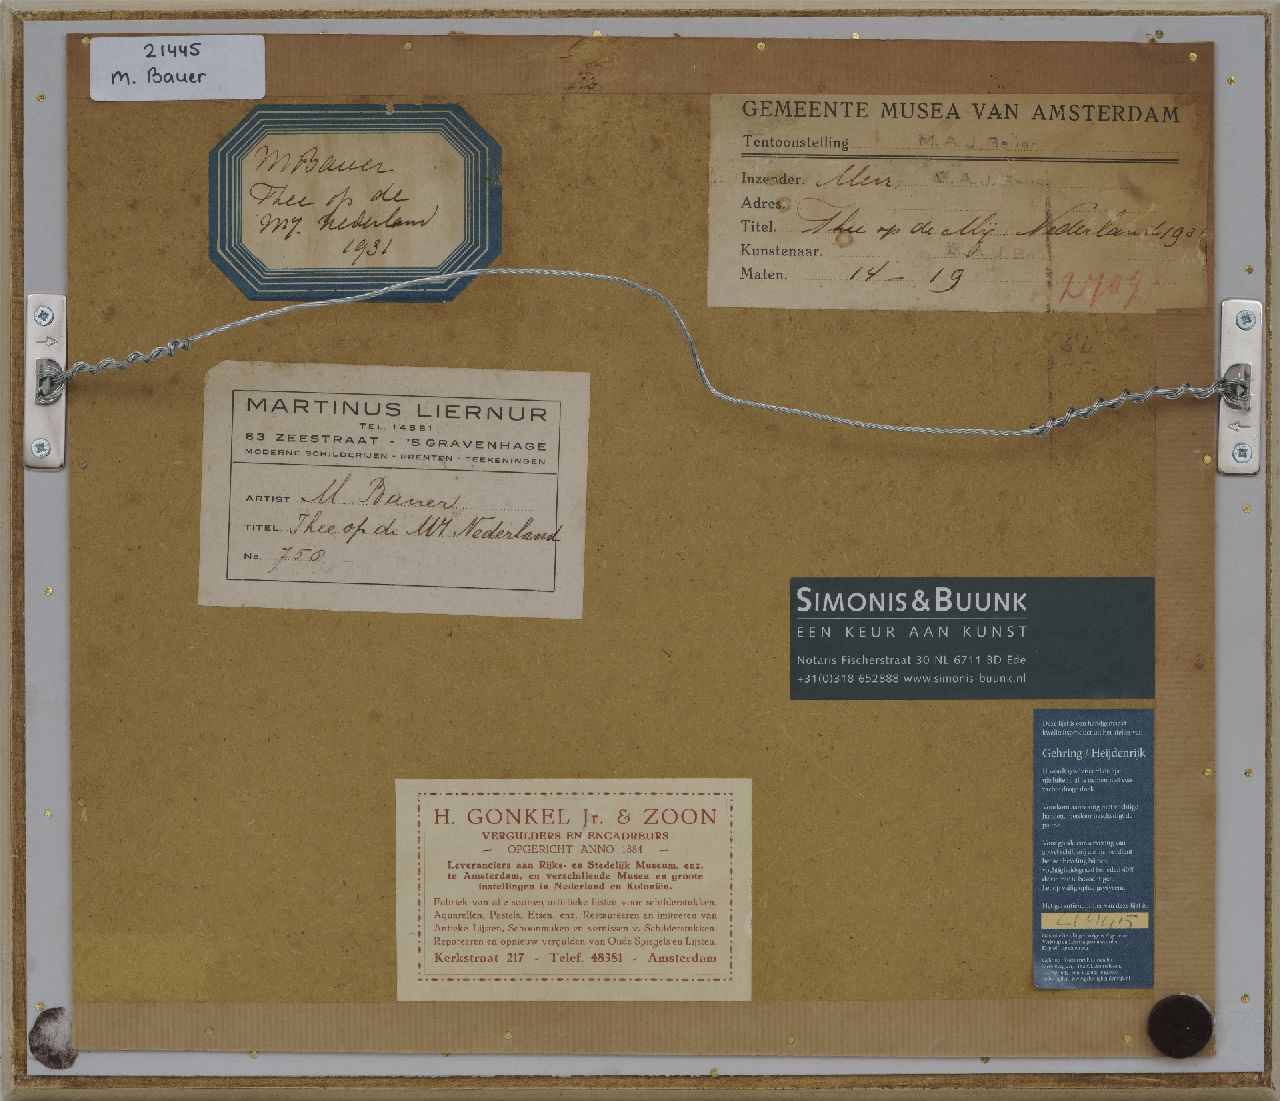 21445
M. Bauer
M Bauer
Thee op de
My. Nederland
1931
GEMEENTE MUSEA VAN AMSTERDAM
Tentoonstelling M. A. J. Bauer
Inzender. Mevr. M. A. J. Bauer
Adres.
Titel. Thee op de Mij. Nederland 1931
Kunstenaar. M. A. J. Bauer
Maten. 14 - 19
2709
MARTINUS LIERNUR
TEL. 14581
63 ZEESTRAAT - 'S GRAVENHAGE
MODERNE SCHILDERIJEN - PRENTEN - TEEKENINGEN
ARTIST M Bauer
TITEL Thee op de My Nederland
No. 750
SIMONIS & BUUNK
EEN KEUR AAN KUNST
Notaris Fischerstraat 30 NL 6711 BD Ede
+31(0)318 652888 www.simonis-buunk.nl
Deze lijst is een handgemaakt
kwaliteitsproduct uit het atelier van
Gehring / Heijdenrijk
21445
H. GONKEL Jr. & ZOON
VERGULDERS EN ENCADREURS
- OPGERICHT ANNO 1884 -
Leveranciers aan Rijks- en Stedelijk Museum, enz.
te Amsterdam, en verschillende Musea en groote
instellingen in Nederland en Koloniën.
Fabriek van alle soorten artistieke lijsten voor schilderstukken,
Aquarellen, Pastels, Etsen, enz. Restaureeren en imiteeren van
Antieke Lijsten, Schoonmaken en vernissen v. Schilderstukken.
Repareeren en opnieuw vergulden van Oude Spiegels en Lijsten.
Kerkstraat 217 - Telef. 48381 - Amsterdam